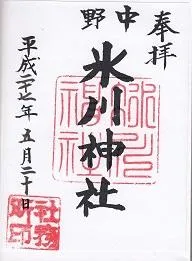 奉拝
中野
氷川神社
平成二十七年五月二十日
氷川神社
社務所印